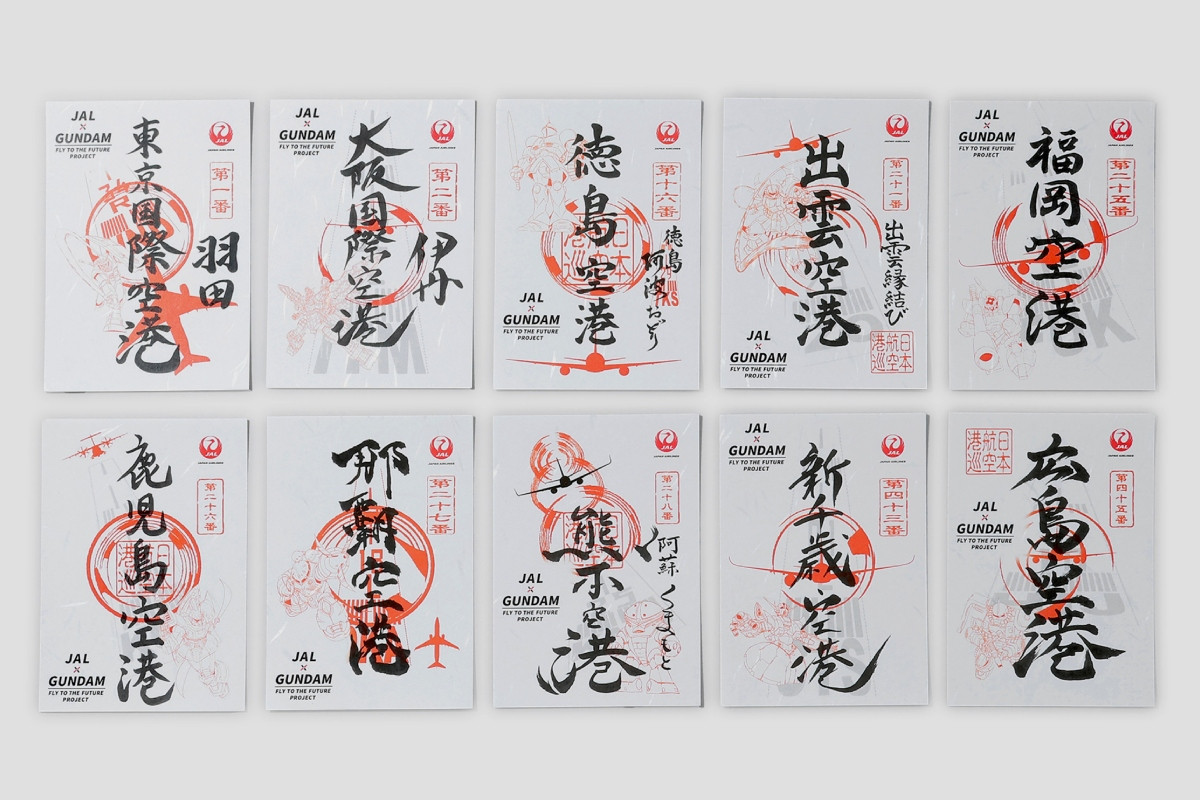 JAL
×
GUNDAM
FLY TO THE FUTURE
PROJECT
JAL
JAPAN AIRLINES
第一番
東京国際空港
羽田
JAL
×
GUNDAM
FLY TO THE FUTURE
PROJECT
JAL
JAPAN AIRLINES
第二番
大阪国際空港
伊丹
JAL
JAPAN AIRLINES
第十六番
徳島空港
徳島
阿波おどり
日本
航空
港巡
JAL
×
GUNDAM
FLY TO THE FUTURE
PROJECT
JAL
JAPAN AIRLINES
第二十一番
出雲空港
出雲縁結び
JAL
×
GUNDAM
FLY TO THE FUTURE
PROJECT
日本
航空
港巡
JAL
×
GUNDAM
FLY TO THE FUTURE
PROJECT
JAL
JAPAN AIRLINES
第二十五番
福岡空港
JAL
JAPAN AIRLINES
第二十六番
鹿児島空港
JAL
×
GUNDAM
FLY TO THE FUTURE
PROJECT
JAL
JAPAN AIRLINES
第二十七番
那覇空港
JAL
×
GUNDAM
FLY TO THE FUTURE
PROJECT
JAL
JAPAN AIRLINES
第二十八番
熊本空港
阿蘇
くまもと
JAL
×
GUNDAM
FLY TO THE FUTURE
PROJECT
JAL
×
GUNDAM
FLY TO THE FUTURE
PROJECT
JAL
JAPAN AIRLINES
第四十三番
新千歳空港
日本
航空
港巡
JAL
JAPAN AIRLINES
第四十五番
広島空港
JAL
×
GUNDAM
FLY TO THE FUTURE
PROJECT